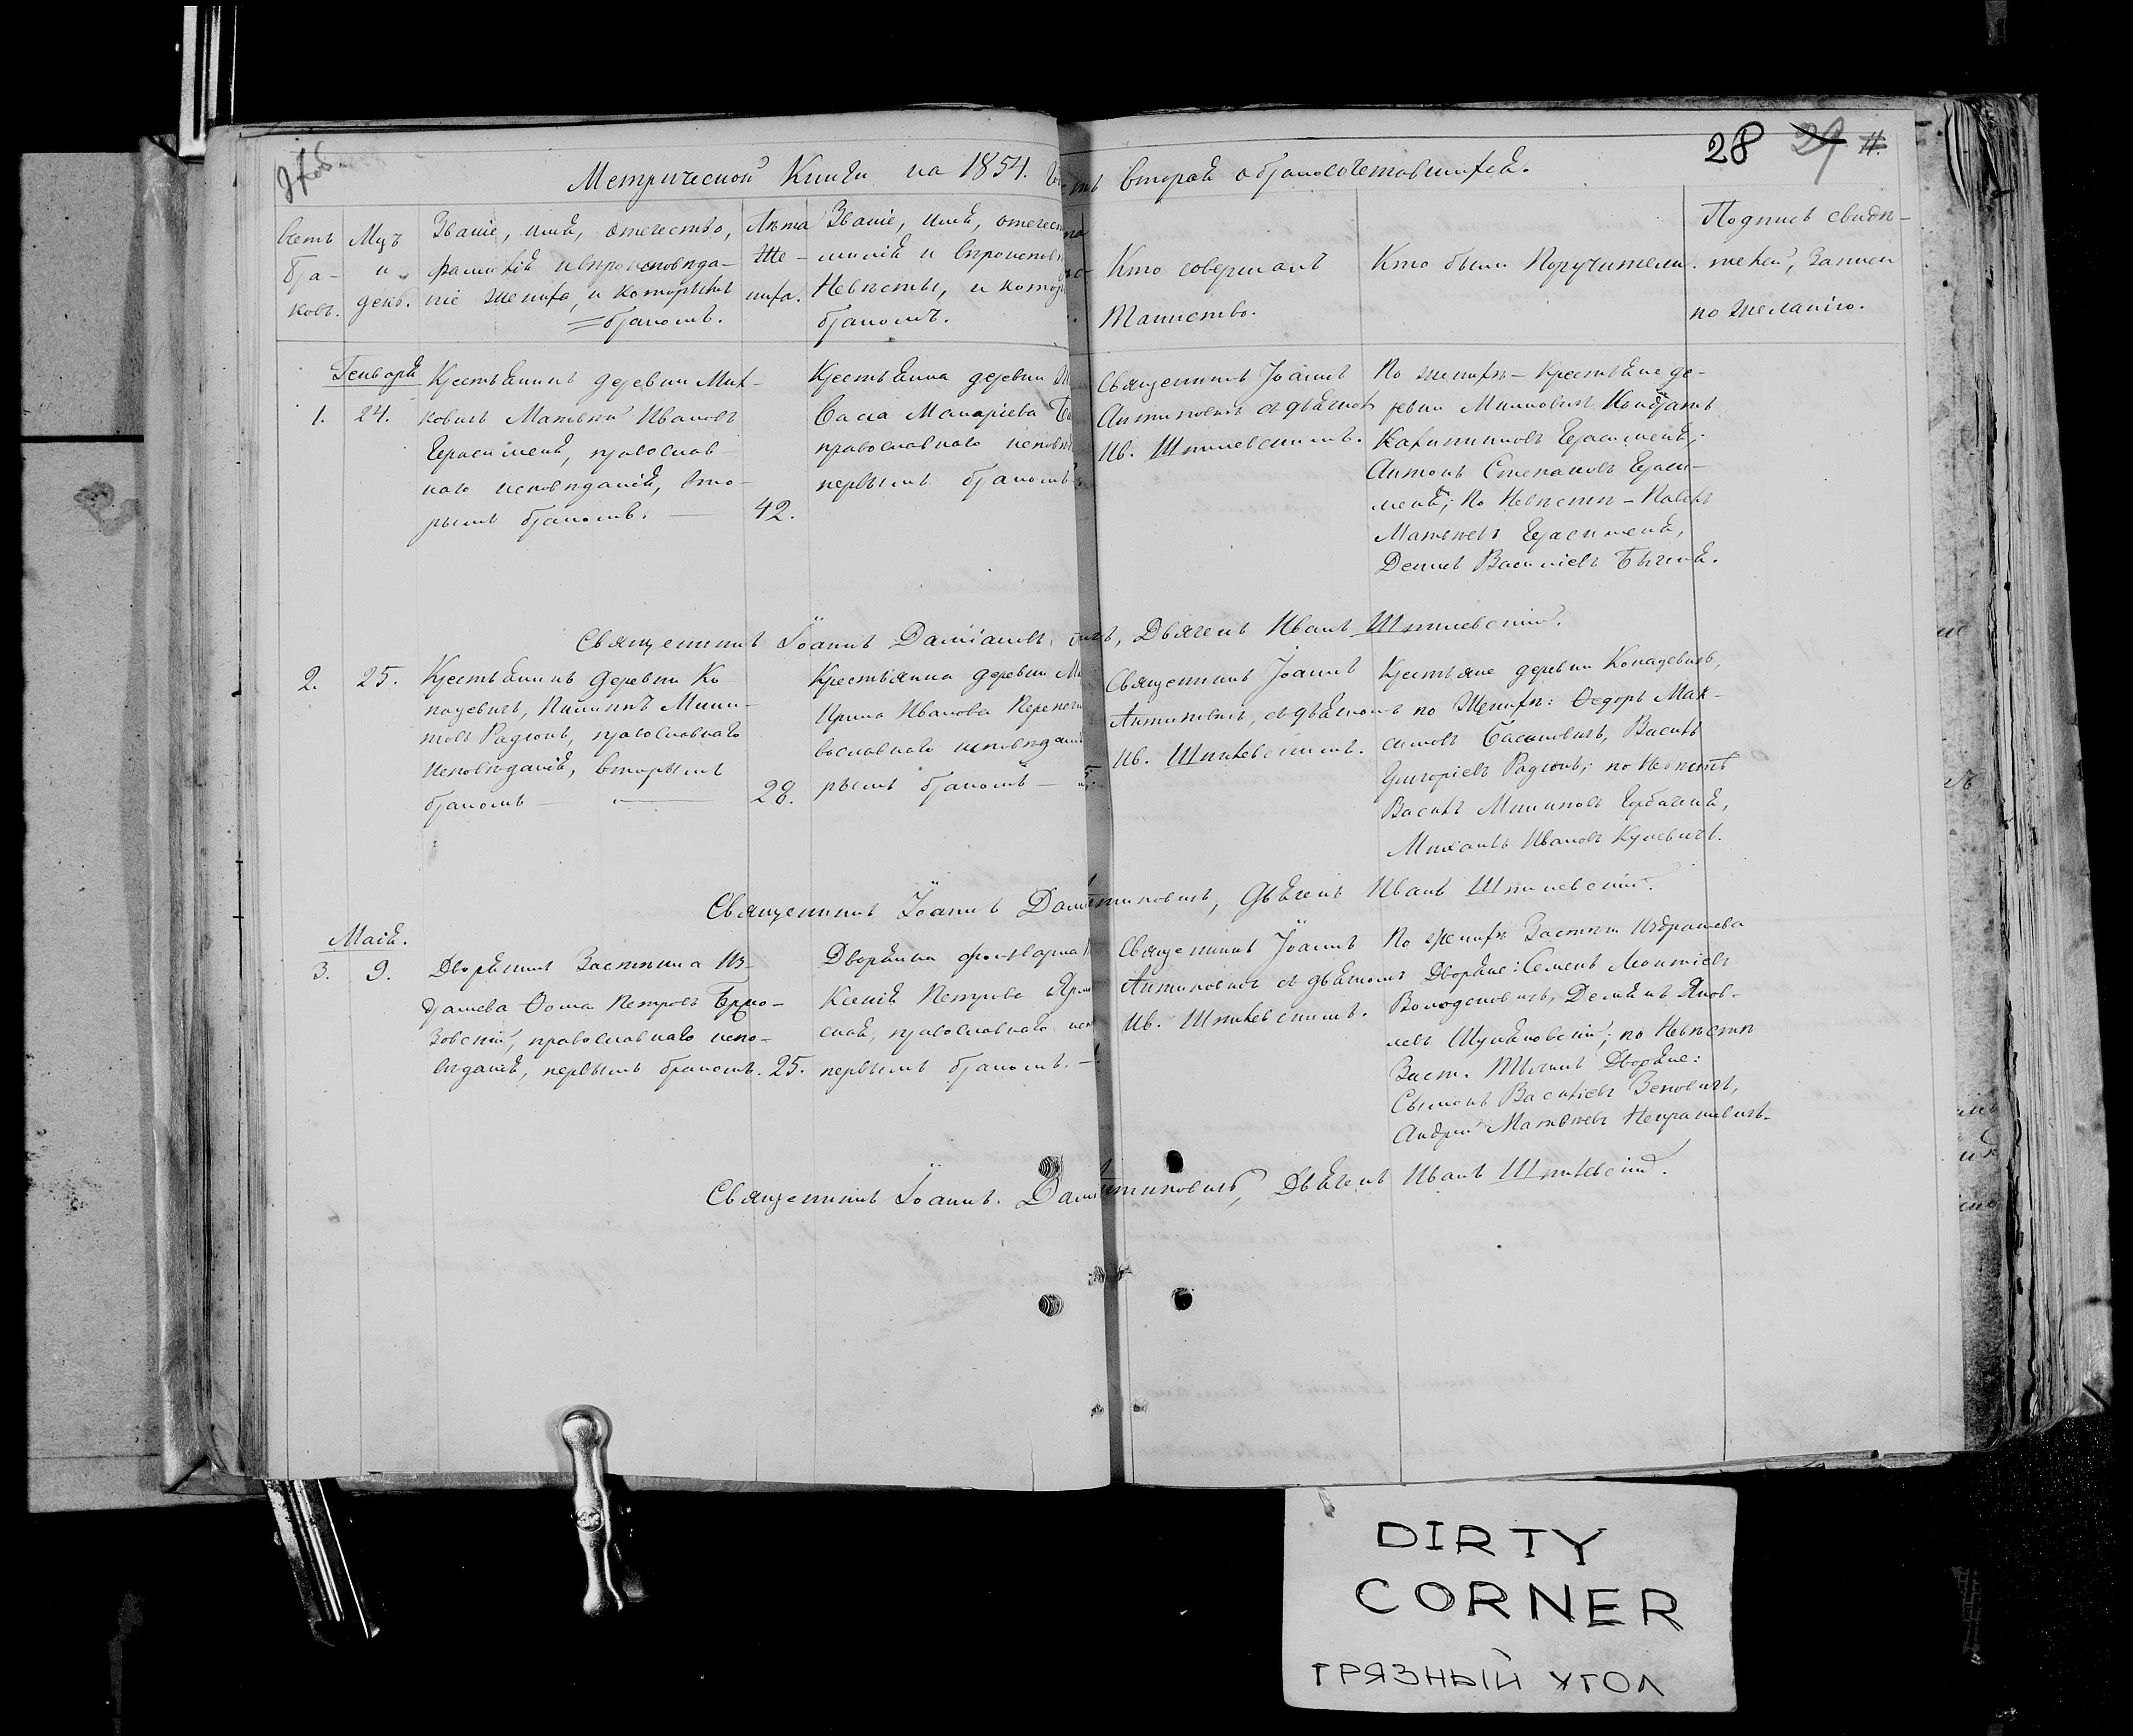 28 29
Метрической Книги на 1854. Часть вторая о бракосочетавшихся.
Счетъ бра- ковъ.
Мцъ и день.
Званіе, имя, отечество,
фамилія и вѣроисповѣда-
ніе жениха, и которымъ
бракомъ.
Лѣта
Же-
ниха.
Званіе, имя, отечест
милія и вѣроисповѣ
Невѣсты, и котор
бракомъ.
Кто совершалъ
Таинство.
Кто были Поручители.
Подпись свидѣ-
телей, записи
по желанію.
Генваря
1. 24.
Крестьянинъ деревни Мил-
ковичъ Матвѣй Ивановъ
Герасименя, православ-
наго исповѣданія, вто-
рымъ бракомъ. — 42.
Крестьянка деревни
Васса Макаріева
православнаго исповѣ
первымъ бракомъ
Священникъ Іоаннъ
Антиповичъ съ дьякомъ
Ив. Шпилевскимъ.
По женихѣ - Крестьяне де-
ревни Милковичъ Кондратъ
Герасименя;
Антонъ Степановъ Гераси-
меня; по Невѣстѣ - Павелъ
Матвѣевъ Герасименя,
Денисъ Василіевъ
Священникъ Іоаннъ Дьячекъ Иванъ Шпилевскій.
2. 25.
Крестьянинъ деревни Ко-
пацевичъ, Филиппъ Мики-
товъ Радюкъ, православнаго
исповѣданія, вторымъ
бракомъ — 28.
Крестьянка деревни
Ирина Иванова
вославнаго исповѣдані
рымъ бракомъ —
Священникъ Іоаннъ
Антиповичъ, съ дьякомъ
Ив. Шпилевскимъ.
Крестьяне деревни Копацевичъ,
по Женихѣ: Ѳедоръ Мак-
симовъ Василь
Григоріевъ Радюкъ; по Невѣстѣ
Василь Горбаченя,
Михаилъ Ивановъ Кулевичъ.
Священникъ Іоаннъ Дьячекъ Иванъ Шпилевскій.
Маія.
3. 9.
Дворянинъ Застѣнка Из-
драшева Ѳома Петровъ Бржо-
зовскій, православнаго испо-
вѣданія, первымъ бракомъ. 25.
Дворянка фольварка
Ксенія Петрова
ская, православнаго исп
первымъ бракомъ. —
Священникъ Іоаннъ
Антиповичъ съ дьякомъ
Ив. Шпилевскимъ.
По женихѣ Застѣнка Издрашева
Дворяне: Семенъ Леонтіевъ
Володковичъ, Демьянъ Яков-
левъ по Невѣстѣ
Заст. Дворяне:
Сымонъ Василіевъ Зенович,
Андрей Матвѣевъ Некрашевичъ.
Священникъ Іоаннъ Дьячекъ Иванъ Шпилевскій.
DIRTY
CORNER
ГРЯЗНЫЙ УГОЛ